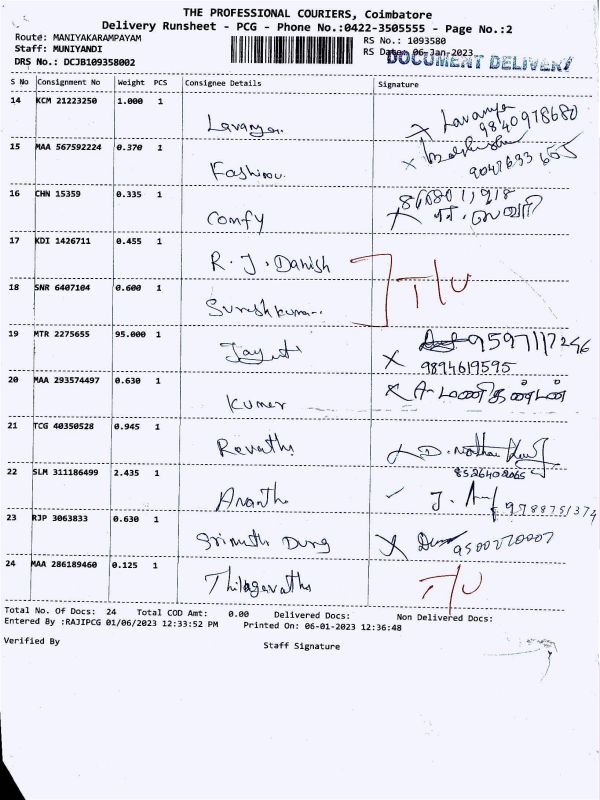 THE PROFESSIONAL COURIERS, Coimbatore
Delivery Runsheet - PCG - Phone No.:0422-3505555 - Page No.:2
Route: MANIYAKARAMPAYAM
RS No.: 1093580
Staff: MUNIYANDI
RS Date: 06-Jan-2023
DOCUMENT DELIVERY
DRS No.: DCJB109358002
S No Consignment No Weight PCS Consignee Details Signature
14 KCM 21223250 1.000 1 Lavanya Lavanya
9840978680
15 MAA 567592224 0.370 1
16 CHN 15359 0.335 1 Comfy
17 KDI 1426711 0.455 1 R. J. Danish T/U
18 SNR 6407104 0.600 1 Sureshkumar
19 MTR 2275655 95.000 1
9894619595
20 MAA 293574497 0.630 1 Kumar A. மணிகண்டன்
21 TCG 40350528 0.945 1 Revathi
8526402065
22 SLM 311186499 2.435 1 Anantha J.
23 RJP 3063833 0.630 1 9500220007
24 MAA 286189460 0.125 1 Thilagavathi T/U
Total No. Of Docs: 24 Total COD Amt: 0.00 Delivered Docs: Non Delivered Docs:
Entered By :RAJIPCG 01/06/2023 12:33:52 PM Printed On: 06-01-2023 12:36:48
Verified By Staff Signature